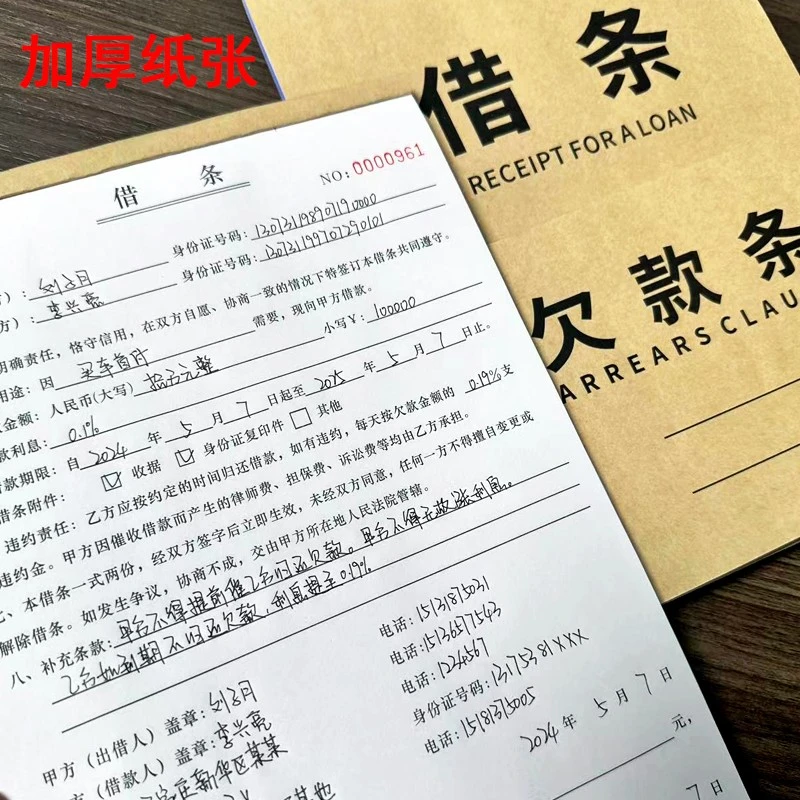 加厚纸张
借 条
RECEIPT FOR A LOAN
欠 款 条
ARREARS CLAU
借 条
NO：0000961
方）：刘子月 身份证号码：
方）：李兴亮 身份证号码：
明确责任，恪守信用，在双方自愿、协商一致的情况下特签订本借条共同遵守。
用途：因 买车首付 需要，现向甲方借款。
金额：人民币(大写) 拾万元整 小写￥：100000
款利息：0.1%
借款期限：自 2024 年 5 月 7 日起至 2025 年 5 月 7 日止。
借条附件： 收据 身份证复印件 其他
违约责任：乙方应按约定的时间归还借款，如有违约，每天按欠款金额的 0.19% 支
违约金。甲方因催收借款而产生的律师费、担保费、诉讼费等均由乙方承担。
七、本借条一式两份，经双方签字后立即生效，未经双方同意，任何一方不得擅自变更或
解除借条。如发生争议，协商不成，交由甲方所在地人民法院管辖。
八、补充条款：甲合不得提前催乙合归还欠款。甲合不得无故涨利息。
乙合如到期不归还欠款，利息提至0.19%
电话：15131875031
电话：15136577543
电话：1234567
身份证号码：13175381XXX
电话：15181375005
甲方（出借人）盖章：刘子月
方（借款人）盖章：李兴亮
庄新华区某某
2024 年 5 月 7 日
元，
7 日